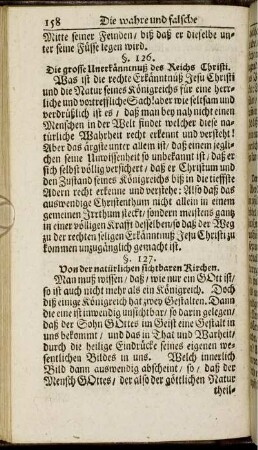 158 Die wahre und falsche
Mitte seiner Feinden / biß daß er dieselbe un-
ter seine Füsse legen wird.
§. 126.
Die grosse Unerkäntnuß des Reichs Christi.
Was ist die rechte Erkäntnüß Jesu Christi
und die Natur seines Königreichs für eine herr-
liche und vortreffliche Sach! aber wie seltsam und
verdrüßlich ist es / daß man bey nah nicht einen
Menschen in der Welt findet welcher diese na-
türliche Wahrheit recht erkennt und versteht!
Aber das ärgste unter allem ist / daß einem jegli-
chen seine Unwissenheit so unbekannt ist / daß er
sich selbst völlig versichert / daß er Christum und
den Zustand seines Königreichs biß in die tieffste
Adern recht erkenne und verstehe: Also daß das
auswendige Christenthum nicht allein in einem
gemeinen Irrthum steckt / sondern meistens gantz
in einer völligen Krafft desselben / so daß der Weg
zu der rechten seligen Erkänntnuß Jesu Christi zu
kommen unzugänglich gemacht ist.
§. 127.
Von der natürlichen sichtbaren Kirchen.
Man muß wissen / daß / wie nur ein GOtt ist /
so ist auch nicht mehr als ein Königreich. Doch
diß einige Königreich hat zwey Gestalten. Dann
die eine ist inwendig unsichtbar / so darin gelegen /
daß der Sohn GOttes im Geist eine Gestalt in
uns bekommt / und das in That und Warheit /
durch die heilige Eindrücke seines eigenen we-
sentlichen Bildes in uns. Welch innerlich
Bild dann auswendig abscheint / so / daß der
Mensch GOttes / der also der göttlichen Natur
theil-